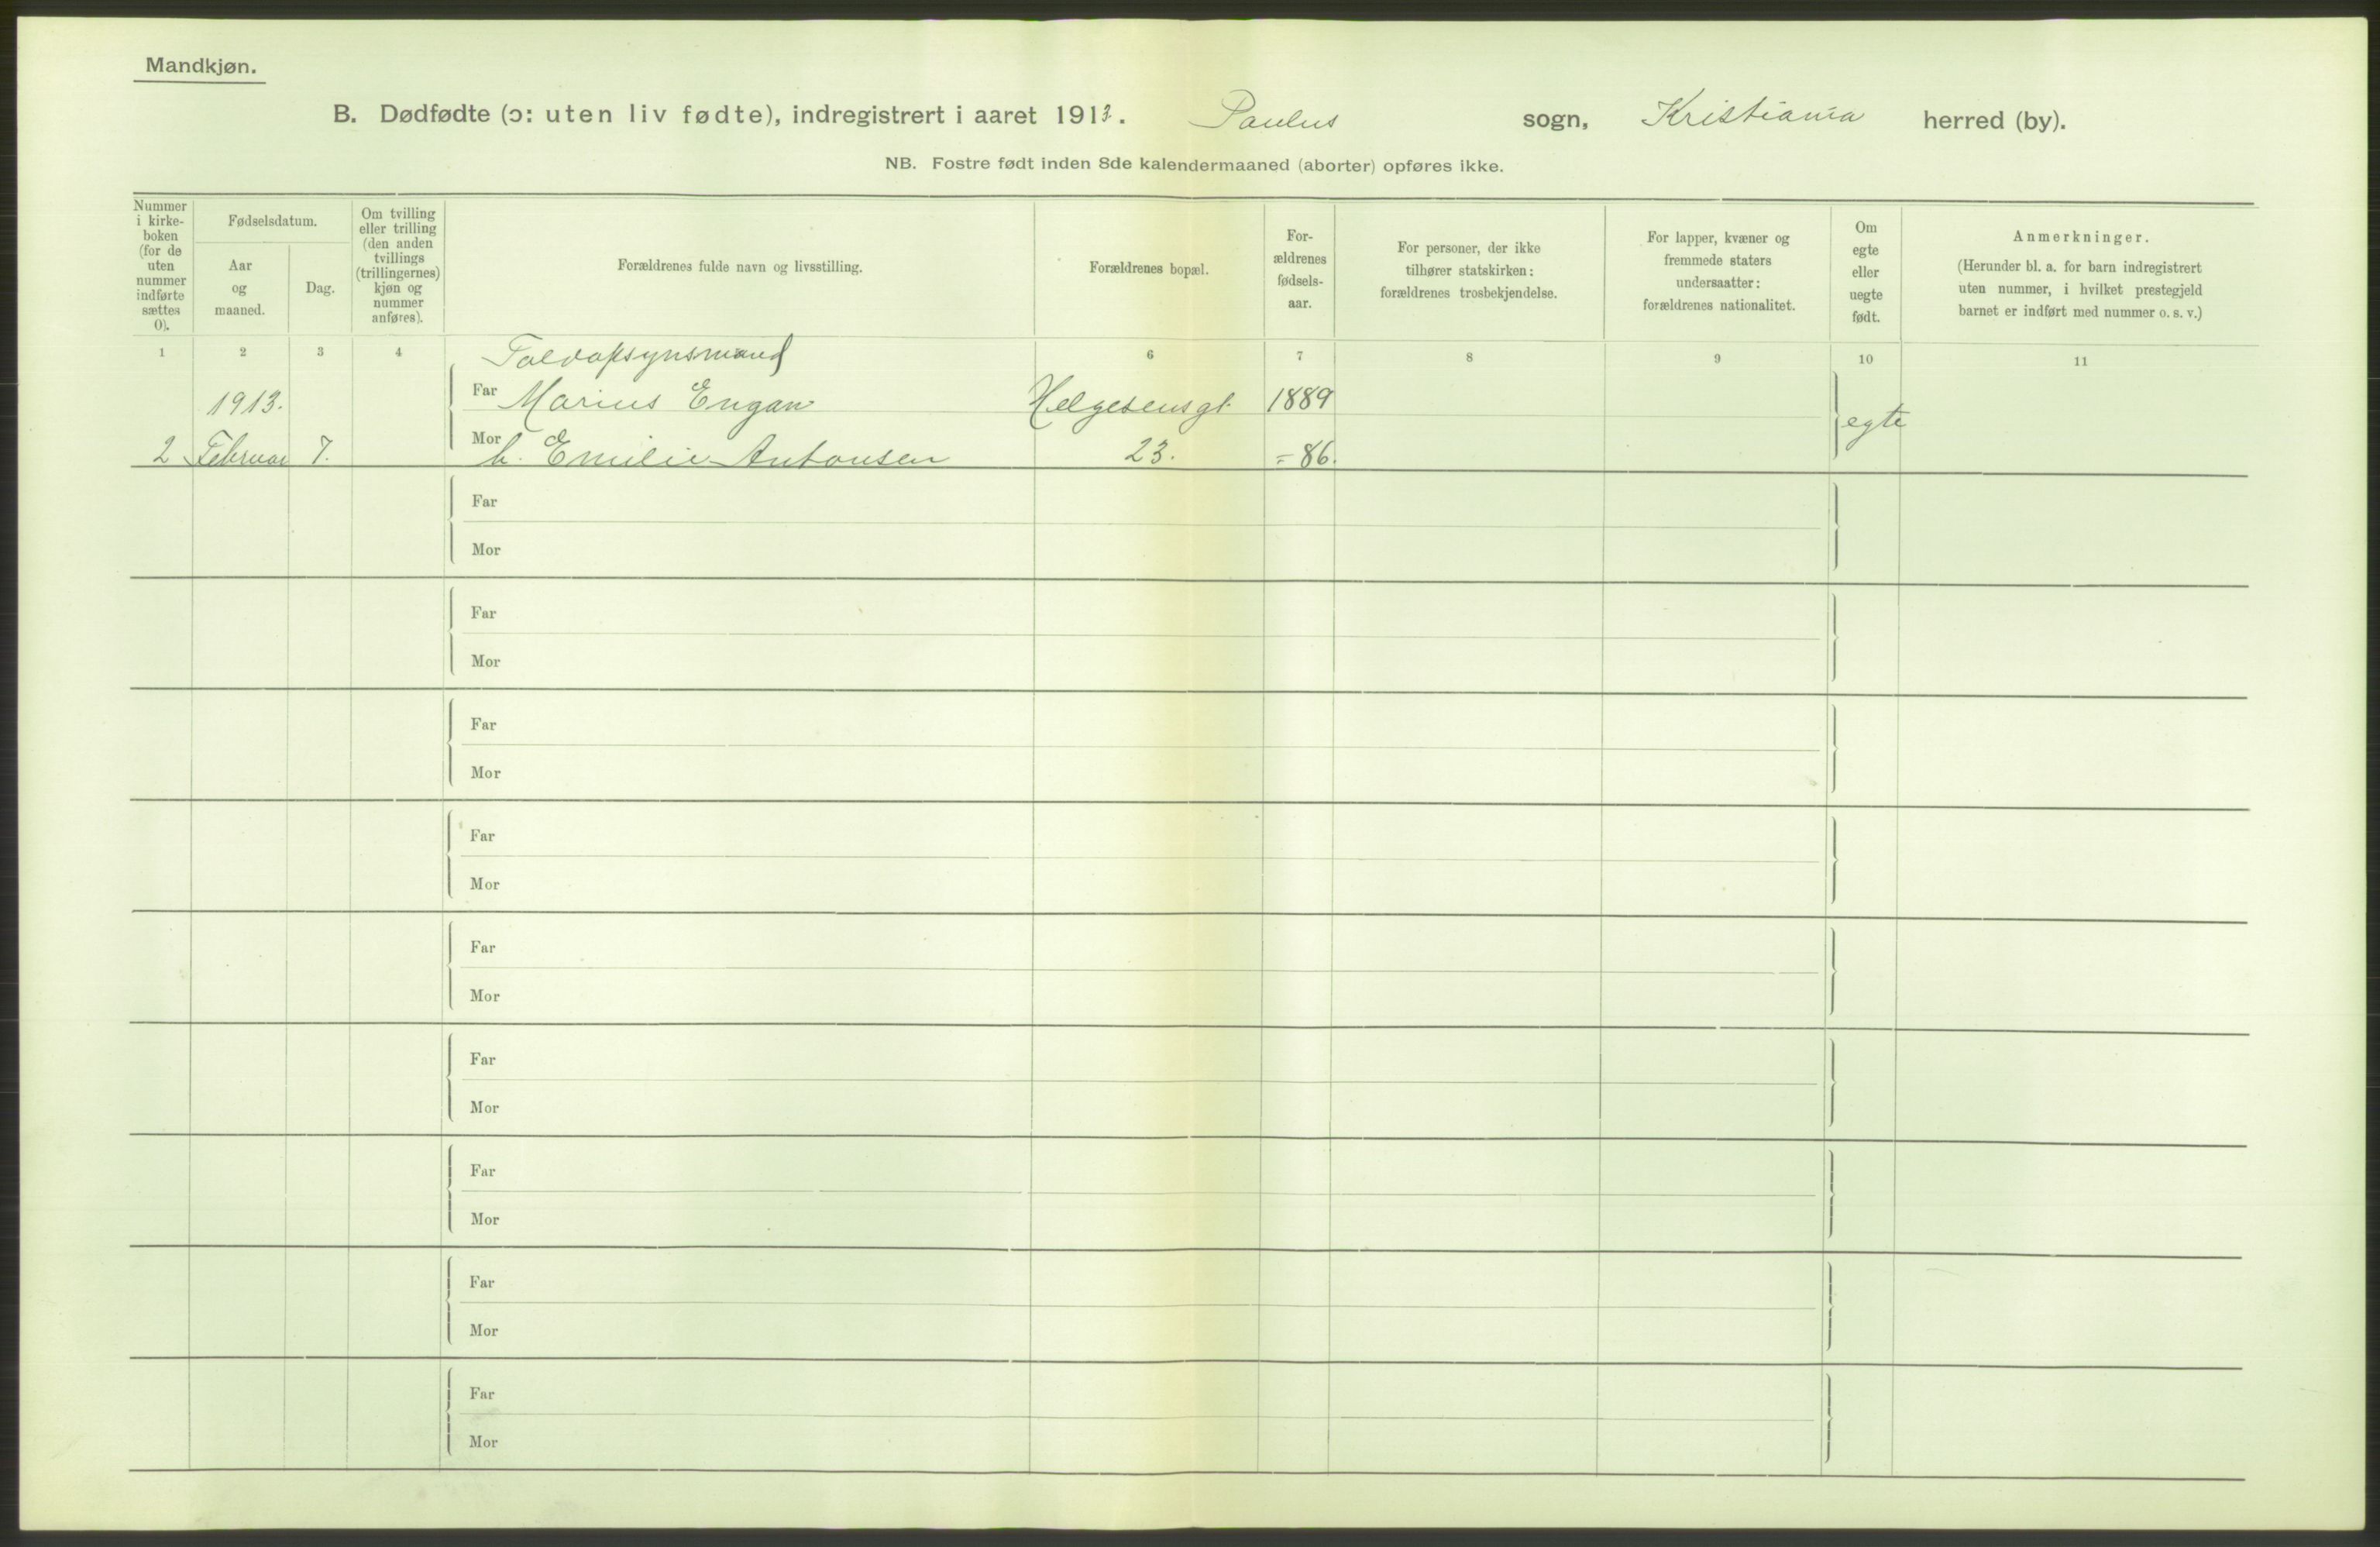 Mandkjøn.
B. Dødfødte (ɔ: uten liv fødte), indregistrert i aaret 1913. Paulus sogn, Kristiania herred (by).
NB. Fostre født inden 8de kalendermaaned (aborter) opføres ikke.
Nummer
i kirke-
boken
(for de
uten
nummer
indførte
sættes
0).
Fødselsdatum.
Aar
og
maaned.
Dag.
Om tvilling
eller trilling
(den anden
tvillings
(trillingernes)
kjøn og
nummer
anføres).
Forældrenes fulde navn og livsstilling.
Forældrenes bopæl.
For-
ældrenes
fødsels-
aar.
For personer, der ikke
tilhører statskirken:
forældrenes trosbekjendelse.
For lapper, kvæner og
fremmede staters
undersaatter:
forældrenes nationalitet.
Om
egte
eller
uegte
født.
Anmerkninger.
(Herunder bl. a. for barn indregistrert
uten nummer, i hvilket prestegjeld
barnet er indført med nummer o. s. v.)
1 2 3 4 6 7 8 9 10 11
Toldopsynsmand
1913. Far Marius Engan Helgesensgt. 1889 egte
2 Februar 7. Mor h. Emilie Antonsen 23. = 86.
Far
Mor
Far
Mor
Far
Mor
Far
Mor
Far
Mor
Far
Mor
Far
Mor
Far
Mor
Far
Mor